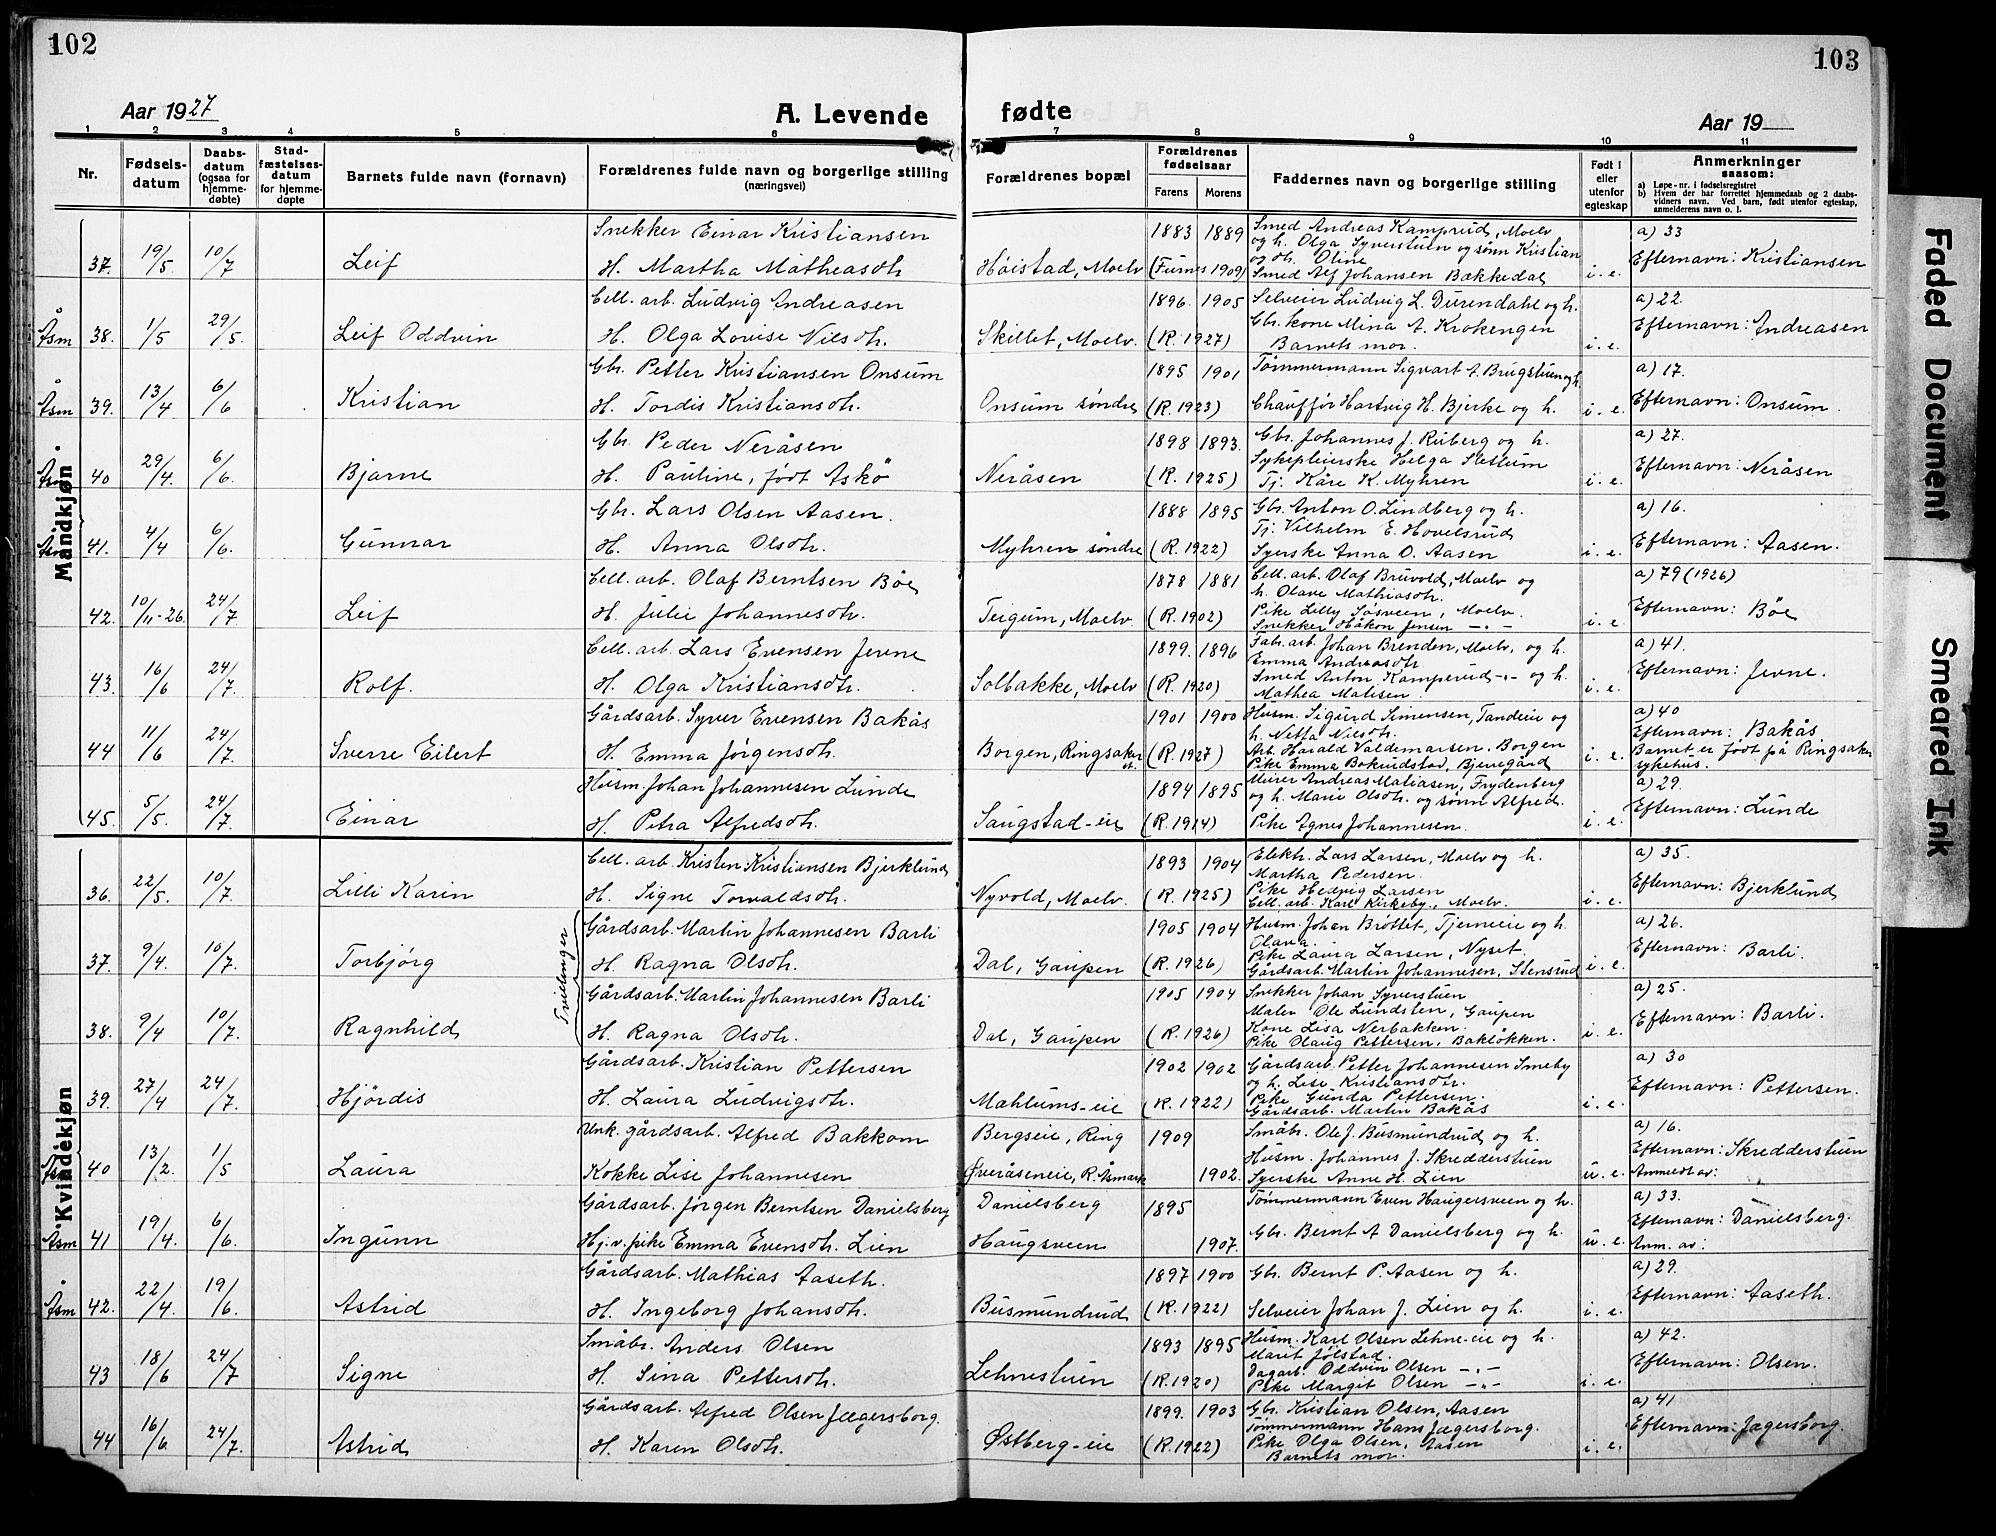 102
103
Aar 1927
A. Levende
fødte
Aar 19
1 2 3 4 5 6 7 8 9 10 11
Nr.
Fødsels-
datum
Daabs-
datum
(ogsaa for
hjemme-
døbte)
Stad-
fæstelses-
datum
for hjemme-
døpte
Barnets fulde navn (fornavn)
Forældrenes fulde navn og borgerlige stilling
(næringsvei)
Forældrenes bopæl
Forældrenes
fødselsaar
Farens Morens
Faddernes navn og borgerlige stilling
Født i
eller
utenfor
egteskap
Anmerkninger
saasom:
a) Løpe-nr. i fødselsregistret
b) Hvem der har forrettet hjemmedaab og 2 daabs-
vidners navn. Ved barn, født utenfor egteskap,
anmelderens navn o. l.
Mandkjøn
37. 19/5. 10/7 Leif
Snekker Einar Kristiansen
H. Martha Matheasdtr.
Høistad, Moelv
1883 1889
(Furnes 1909)
Smed Andreas Kamprud, Moelv
og h. Olga Syverstuen og sønn Kristian
og dtr. Oline
Smed Alf Johansen Bækkedal
i. e.
a) 33
Efternavn: Kristiansen
Åsm 38. 1/5 29/5. Leif Oddvin
Cell. arb. Ludvig Andreasen
H. Olga Lovise Nilsdtr.
Skillet, Moelv.
1896. 1905
(R. 1927)
Selveier Ludvig L. Durendahl og h.
Gbr. kone Mina A. Krokengen
Barnets mor.
i. e.
a) 22.
Efternavn: Andreasen
Åsm 39. 13/4 6/6 Kristian
Gbr. Petter Kristiansen Onsum
H. Tordis Kristiansdtr.
Onsum søndre
1895 1901
(R. 1923)
Tømmermann Sigvart A. Brugstuen og h.
Chauffør Hartvig H. Bjerke og h.
i. e.
a) 17.
Efternavn: Onsum.
Åsm 40 29/4. 6/6. Bjarne
Gbr. Peder Neråsen
H. Pauline, født Askö
Neråsen
1898 1893.
(R. 1925)
Gbr. Johannes J. Ruberg og h.
Sykepleierske Helga Slettum
Tj. Kåre K. Myhren
i. e.
a) 27.
Efternavn: Neråsen
Åsm 41. 4/4 6/6. Gunnar
Gbr. Lars Olsen Aasen.
H. Anna Olsdtr.
Myhren søndre
1888 1895
(R. 1922)
Gbr. Anton O. Lindberg og h.
Tj. Vilhelm E. Hovelsrud
Syerske Anna O. Aasen
i. e.
a) 16.
Efternavn: Aasen.
42. 10/11-26. 24/7 Leif
Cell. arb. Olaf Berntsen Bøe
H. Julie Johannesdtr.
Teigum, Moelv
1878 1881
(R. 1902)
Cell. arb. Olaf Bruvold, Moelv og
h. Olave Mathiasdtr.
Pike Lilly Søsveen, Moelv.
Snekker Håkon Jensen -"-
i. e.
a) 79 (1926)
Efternavn: Bøe
43. 16/6 24/7. Rolf.
Cell. arb. Lars Evensen Jevne
H. Olga Kristiansdtr.
Solbakke, Moelv
1899. 1896
(R. 1920)
Fabr. arb. Johan Brenden, Moelv, og h.
Emma Andreasdtr
Smed Anton Kamperud -"- og h.
Mathea Matisen.
i. e.
a) 41.
Efternavn: Jevne.
44 11/6 24/7. Sverre Eilert
Gårdsarb. Syver Evensen Bakås
H. Emma Jørgensdtr.
Borgen, Ringsaker
1901 1900
(R. 1927)
Husm. Sigurd Simensen, Tandeie og
h. Netta Nilsdtr.
Arb. Harald Valdemarsen, Borgen
Pike Emma Bakrudstad, Bjerregård
i. e.
a) 40
Efternavn: Bakås
Barnet er født på Ringsaker
sykehus.
45. 5/5. 24/7. Einar
Husm. Johan Johannesen Lunde
H. Petra Alfredsdtr.
Saugstad-eie
1894 1895
(R. 1914)
Murer Andreas Matiasen, Frydenberg
og h. Marie Olsdtr. og sønn Alfred.
Pike Agnes Johannesen.
i. e.
a) 29.
Efternavn: Lunde
Kvindekjøn
36. 22/5. 10/7. Lilli Karin
Cell. arb. Kristen Kristiansen Bjerklund
H. Signe Torvaldsdtr.
Nyvold, Moelv.
1893 1904
(R. 1925)
Elektr. Lars Larsen, Moelv og h.
Martha Pedersen.
Pike Hedvig Larsen
Cell. arb. Karl Kirkeby, Moelv.
i. e.
a) 35.
Efternavn: Bjerklund
Tvillinger
37. 9/4. 10/7. Torbjørg
Gårdsarb. Martin Johannesen Barli
H. Ragna Olsdtr.
Dal, Gaupen
1905 1904
(R. 1926)
Husm. Johan Brøttet, Tjerneie og h.
Olava.
Pike Laura Larsen, Nyset.
Gårdsarb. Martin Johannesen, Stensrud
i. e.
a) 26.
Efternavn: Barli.
38. 9/4 10/7. Ragnhild
Gårdsarb. Martin Johannesen Barli
H. Ragna Olsdtr.
Dal, Gaupen
1905 1904
(R. 1926)
Snekker Johan Syverstuen
Maler Ole Lundsten, Gaupen
Kone Lisa Nerbakken.
Pike Olaug Pettersen, Bakløkken.
i. e.
a) 25.
Efternavn: Barli.
39. 27/4 24/7. Hjördis
Gårdsarb. Kristian Pettersen
H. Laura Ludvigsdtr.
Mæhlums-eie
1902 1902
(R. 1922)
Gårdsarb. Petter Johannesen Smeby
og h. Lise Kristiansdtr.
Pike Gunda Pettersen.
Gårdsarb. Martin Bakås
i. e.
a) 30
Efternavn: Pettersen.
Åsm 40 13/2. 1/5 Laura
Unk. gårdsarb. Alfred Bakkom
Kokke Lise Johannesen
Bergseie, Ring
Øveråseneie, R. Åsmark
1909
1902.
Småbr. Ole J. Busmundrud og h.
Husm. Johannes J. Skredderstuen
Syerske Anne H. Lien
u. e.
a) 16.
Efternavn: Skredderstuen
Anmeldt av:
Åsm 41 19/4. 6/6. Ingunn
Gårdsarb. Jørgen Berntsen Danielsberg
Hj. v. pike Emma Evensdtr. Lien
Danielsberg
Haugsveen
1895
1907.
Tømmermann Even Haugersveen og h.
Gbr. Bernt A Danielsberg og h.
u. e.
a) 33.
Efternavn: Danielsberg.
Anm. av:
Åsm 42. 22/4. 19/6. Astrid
Gårdsarb. Mathias Aaseth.
H. Ingeborg Johansdtr.
Busmundrud
1897 1900
(R. 1922)
Gbr. Bernt P. Aasen og h.
Selveier Johan J. Lien og h.
i. e.
a) 29.
Efternavn: Aaseth.
43 18/6 24/7 Signe
Småbr. Anders Olsen
H. Sina Pettersdtr.
Lehnestuen
1893 1895
(R. 1920)
Husm. Karl Olsen Lehne-eie og h.
Marit Jølstad.
Dagarb. Oddvin Olsen -"-
Pike Margit Olsen -"-
i. e.
a) 42.
Efternavn: Olsen.
44 16/6. 24/7. Astrid
Gårdsarb. Alfred Olsen Jægersborg.
H. Karen Olsdtr.
Østberg-eie
1899. 1903
(R. 1922)
Gbr. Kristian Olsen, Aasen
Tømmermann Hans Jægersborg.
Pike Olga Olsen, Aasen
Barnets mor.
i. e.
a) 41
Efternavn: Jægersborg.
Faded Document
Smeared Ink